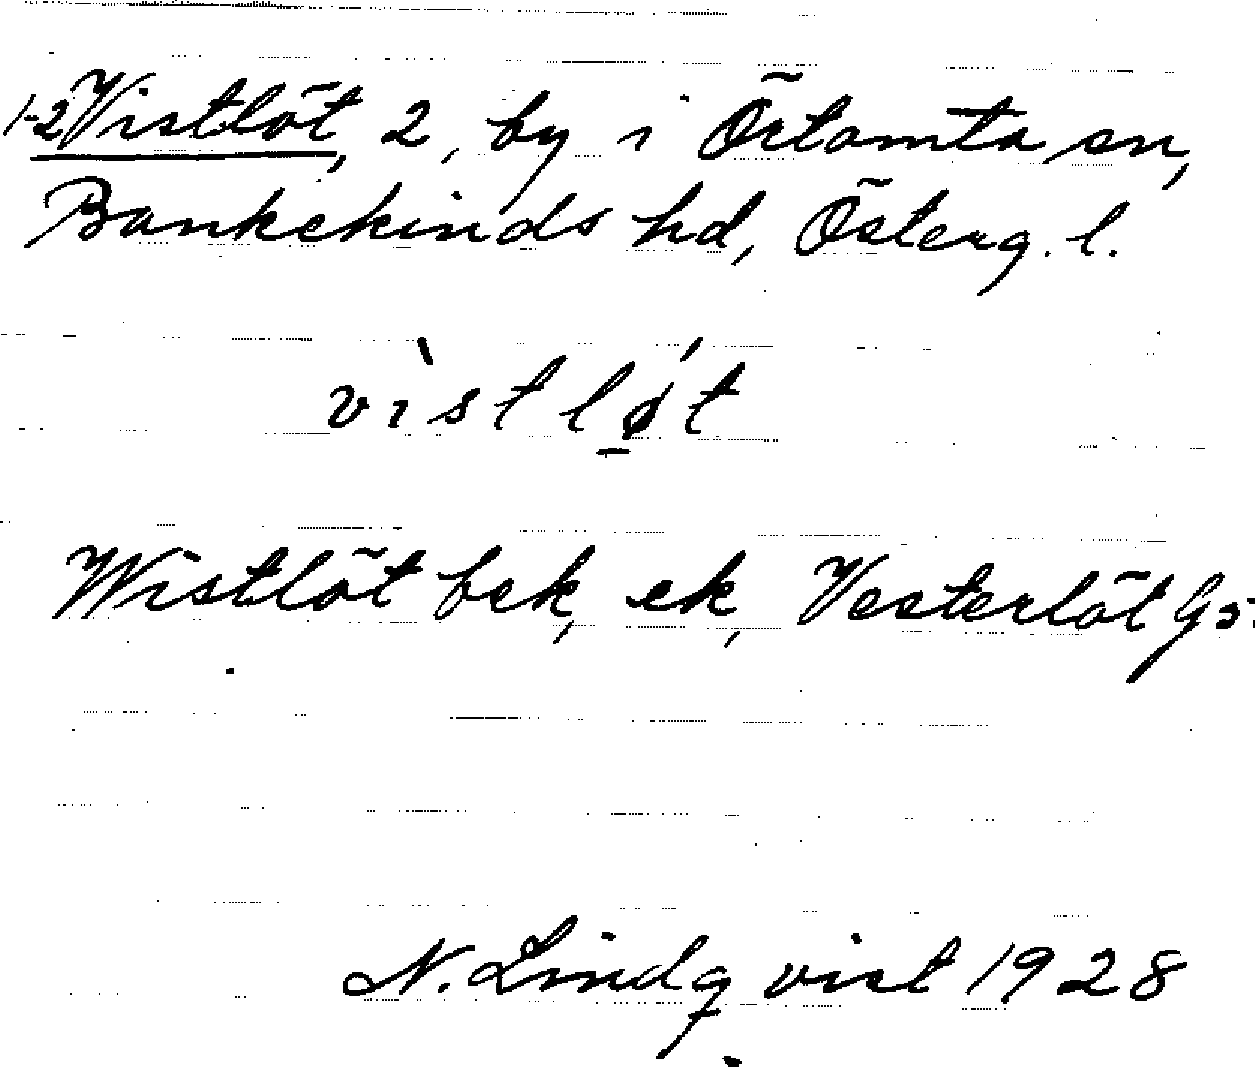 1-2 Vistlöt, 2, by i Örtomta sn,
Bankekinds hd, Österg. l.
vìstlǿ̠t
Wistlöt bek, ek, Vesterlöt Gs.
N. Lindqvist 1928